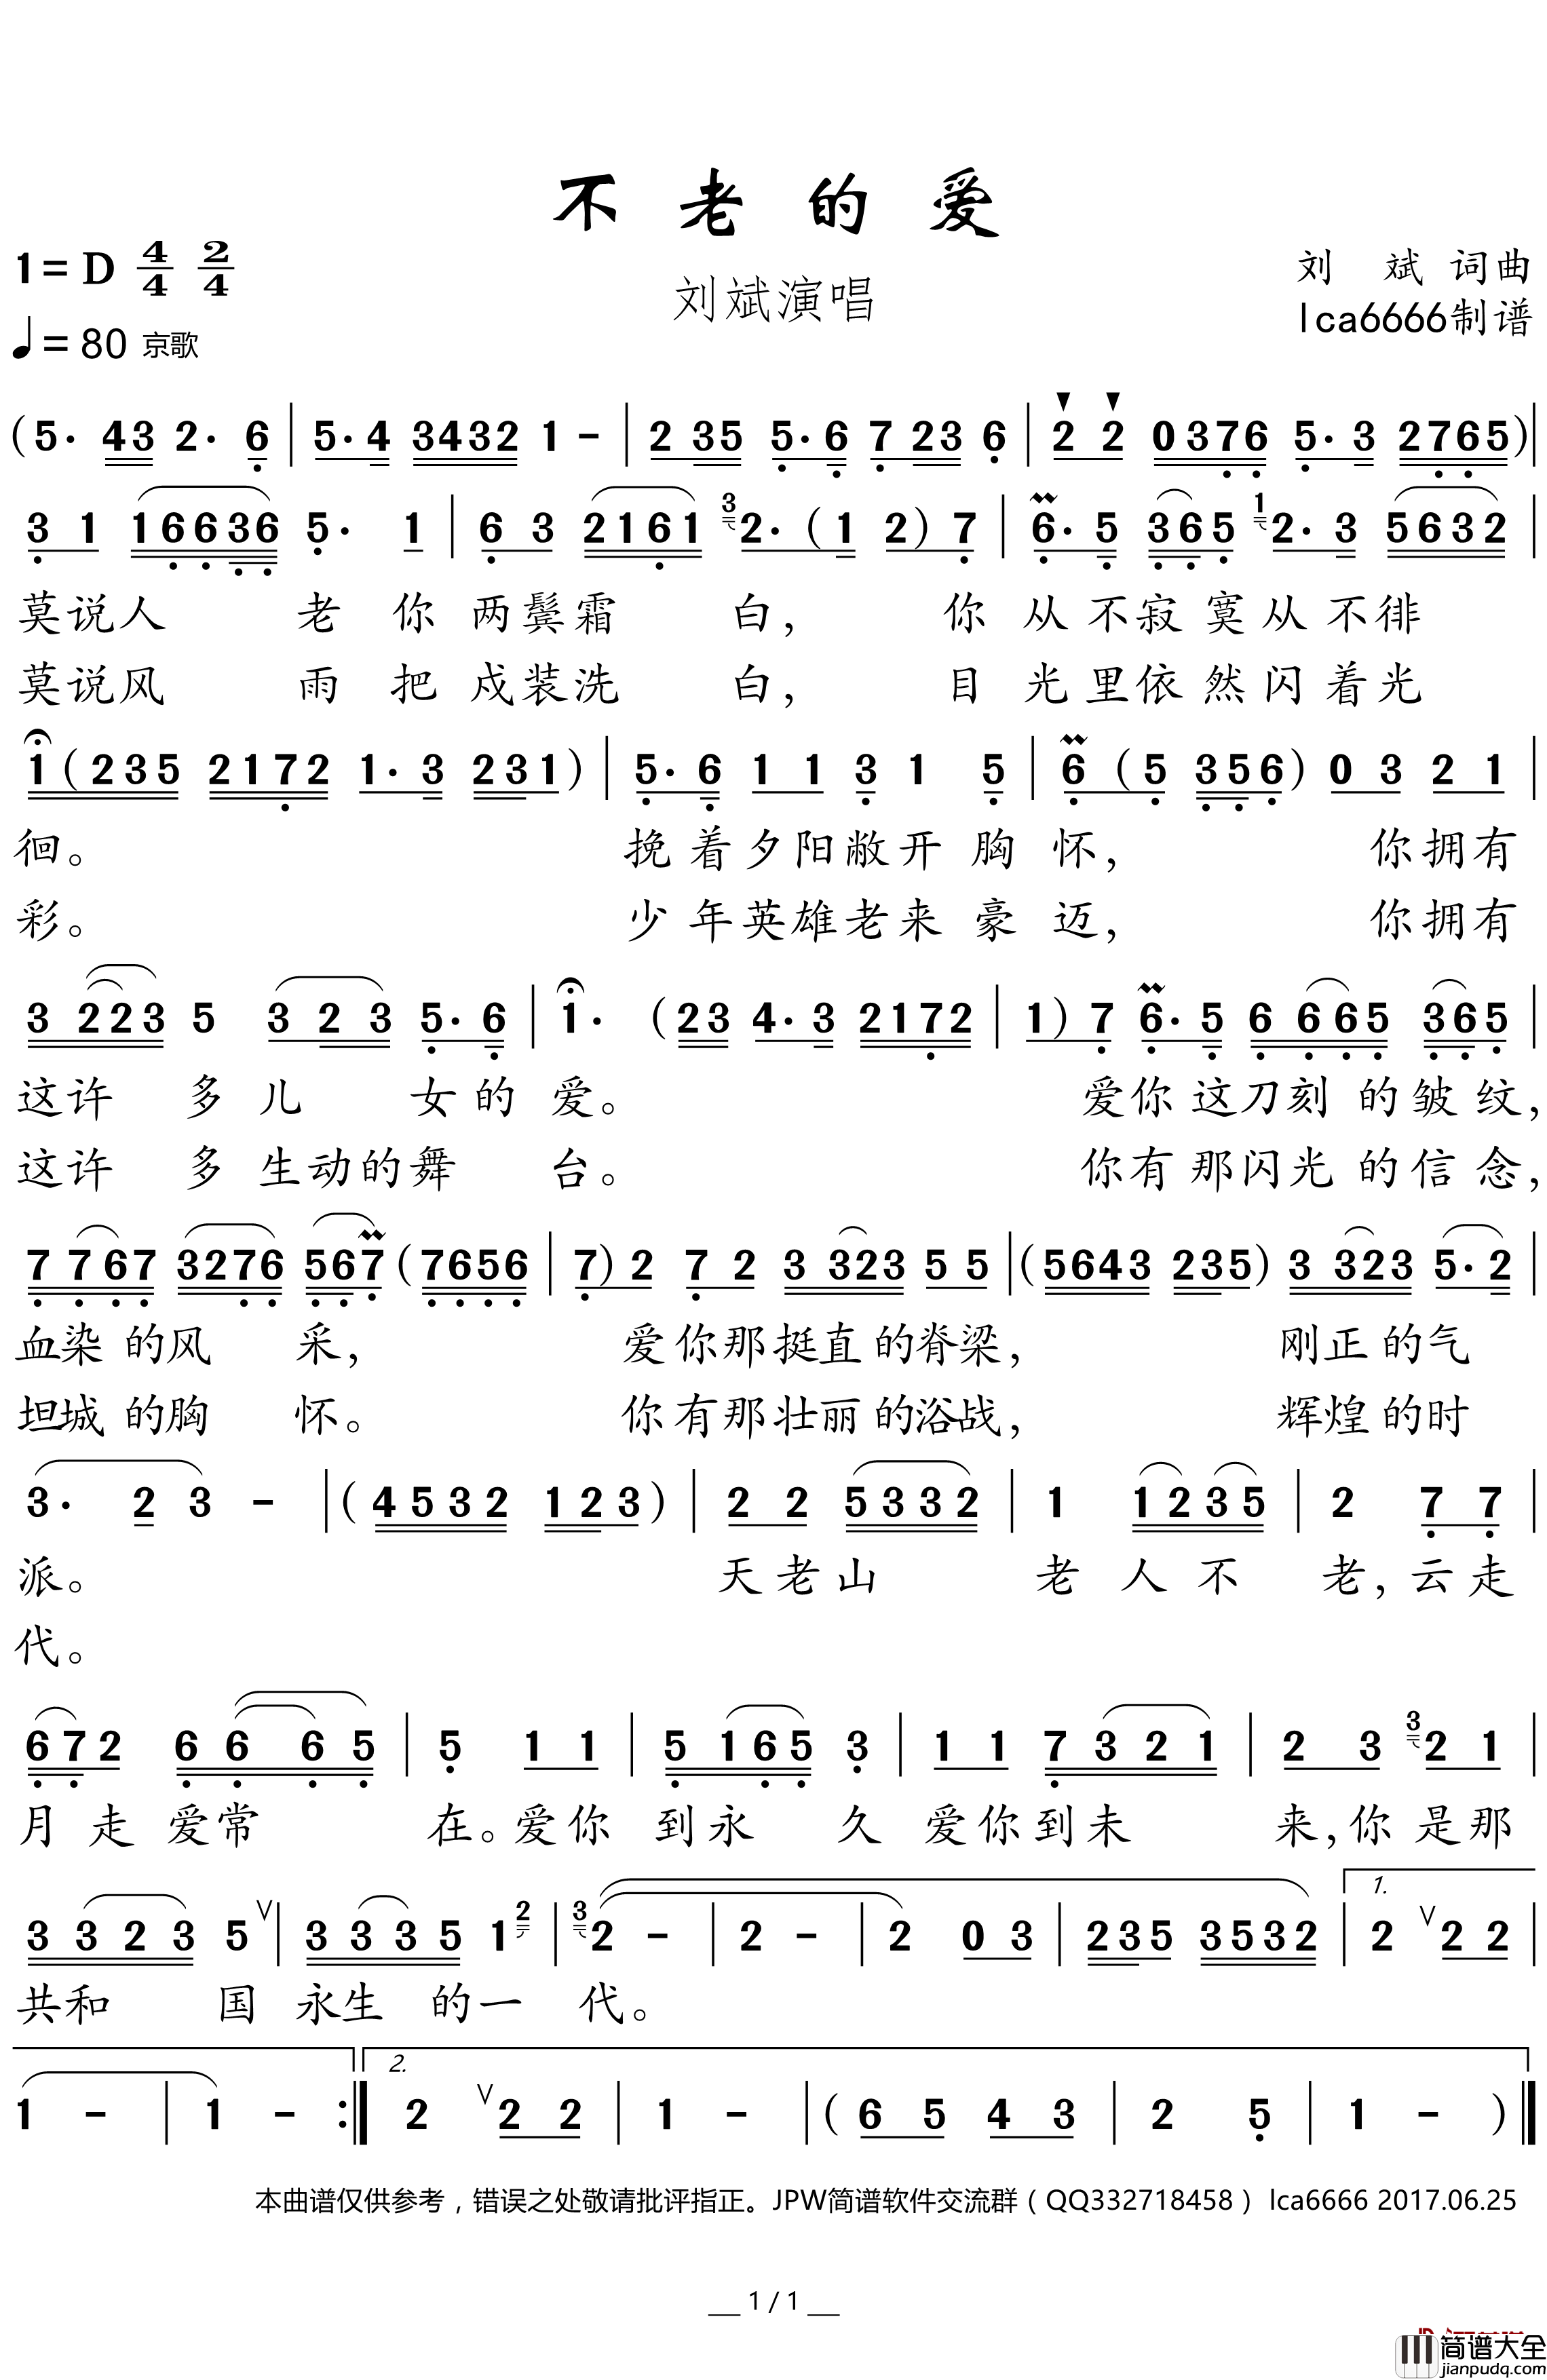 不老的爱
1=D 4/4 2/4
刘斌演唱
刘 斌 词曲
lca6666制谱
♩=80 京歌
(5· 43 2· 6 | 5·4 3432 1 - | 2 35 5·6 7 23 6 | 2 2 0376 5·3 2765)|
3 1 16636 5· 1 | 6 3 2161 3 2·(1 2) 7 | 6·5 365 1 2·3 5632 |
莫说人 老 你 两鬓霜 白, 你 从不寂寞从不徘
莫说风 雨 把 戍装洗 白, 目 光里依然闪着光
1(235 2172 1·3 231) | 5·6 1 1 3 1 5 | 6 (5 356) 0 3 2 1 |
徊。 挽着夕阳敞开胸 怀, 你拥有
彩。 少年英雄老来豪 迈, 你拥有
3 223 5 3 2 3 5·6 | 1· (23 4·3 2172 | 1) 7 6·5 6 665 365 |
这许 多 儿 女的 爱。 爱你这刀刻的皱纹,
这许 多 生动的舞 台。 你有那闪光的信念,
7 767 3276 567 (7656 | 7) 2 7 2 3 323 5 5 |(5643 235) 3 323 5·2 |
血染的风 采, 爱你那挺直的脊梁, 刚正的气
坦城的胸 怀。 你有那壮丽的浴战, 辉煌的时
3· 2 3 - | (4532 123) | 2 2 5332 | 1 1235 | 2 7 7 |
派。 天老山 老人不 老,云走
代。
672 6 6 6 5 | 5 1 1 | 5 165 3 | 1 1 7321 | 2 3 3 2 1 |
月走爱常 在。爱你到永 久 爱你到未 来,你是那
3 323 5 | 3 335 1 2 | 3 2 - | 2 - | 2 0 3 | 235 3532 | 1. 2 2 2 |
共和 国 永生 的一 代。
1 - | 1 - :| 2. 2 2 2 | 1 - | (6 5 4 3 | 2 5 | 1 - )|
本曲谱仅供参考，错误之处敬请批评指正。JPW简谱软件交流群（QQ332718458） lca6666 2017.06.25
1 / 1
简谱大全
jianpudq.com